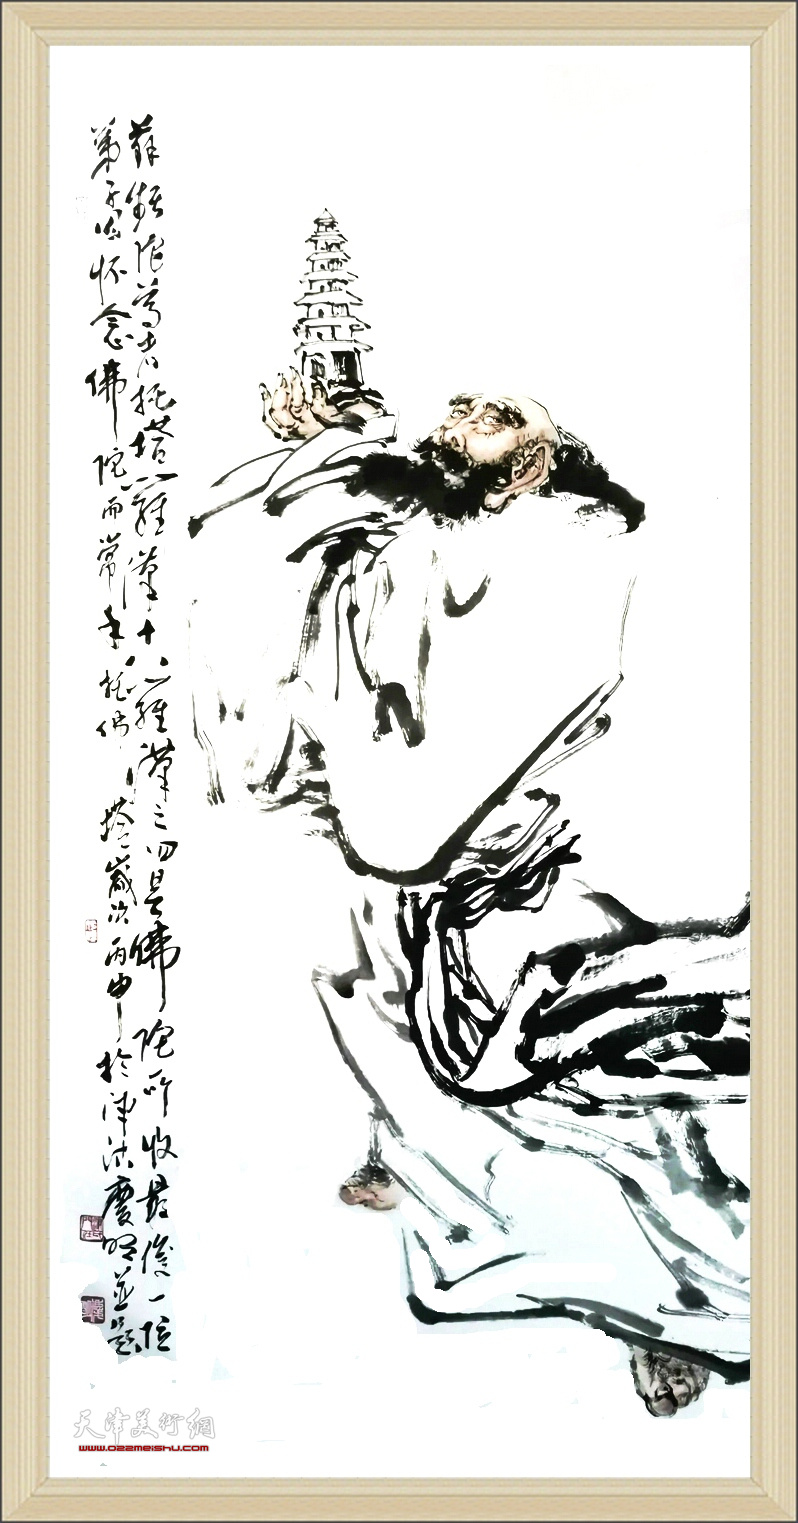 蘇頻陀尊者托塔羅漢十八羅漢之四是佛陀所收最後一位
弟子因怀念佛陀而常手托佛塔歲次丙申於津沽慶明並題
天津美術網
www.022meishu.com